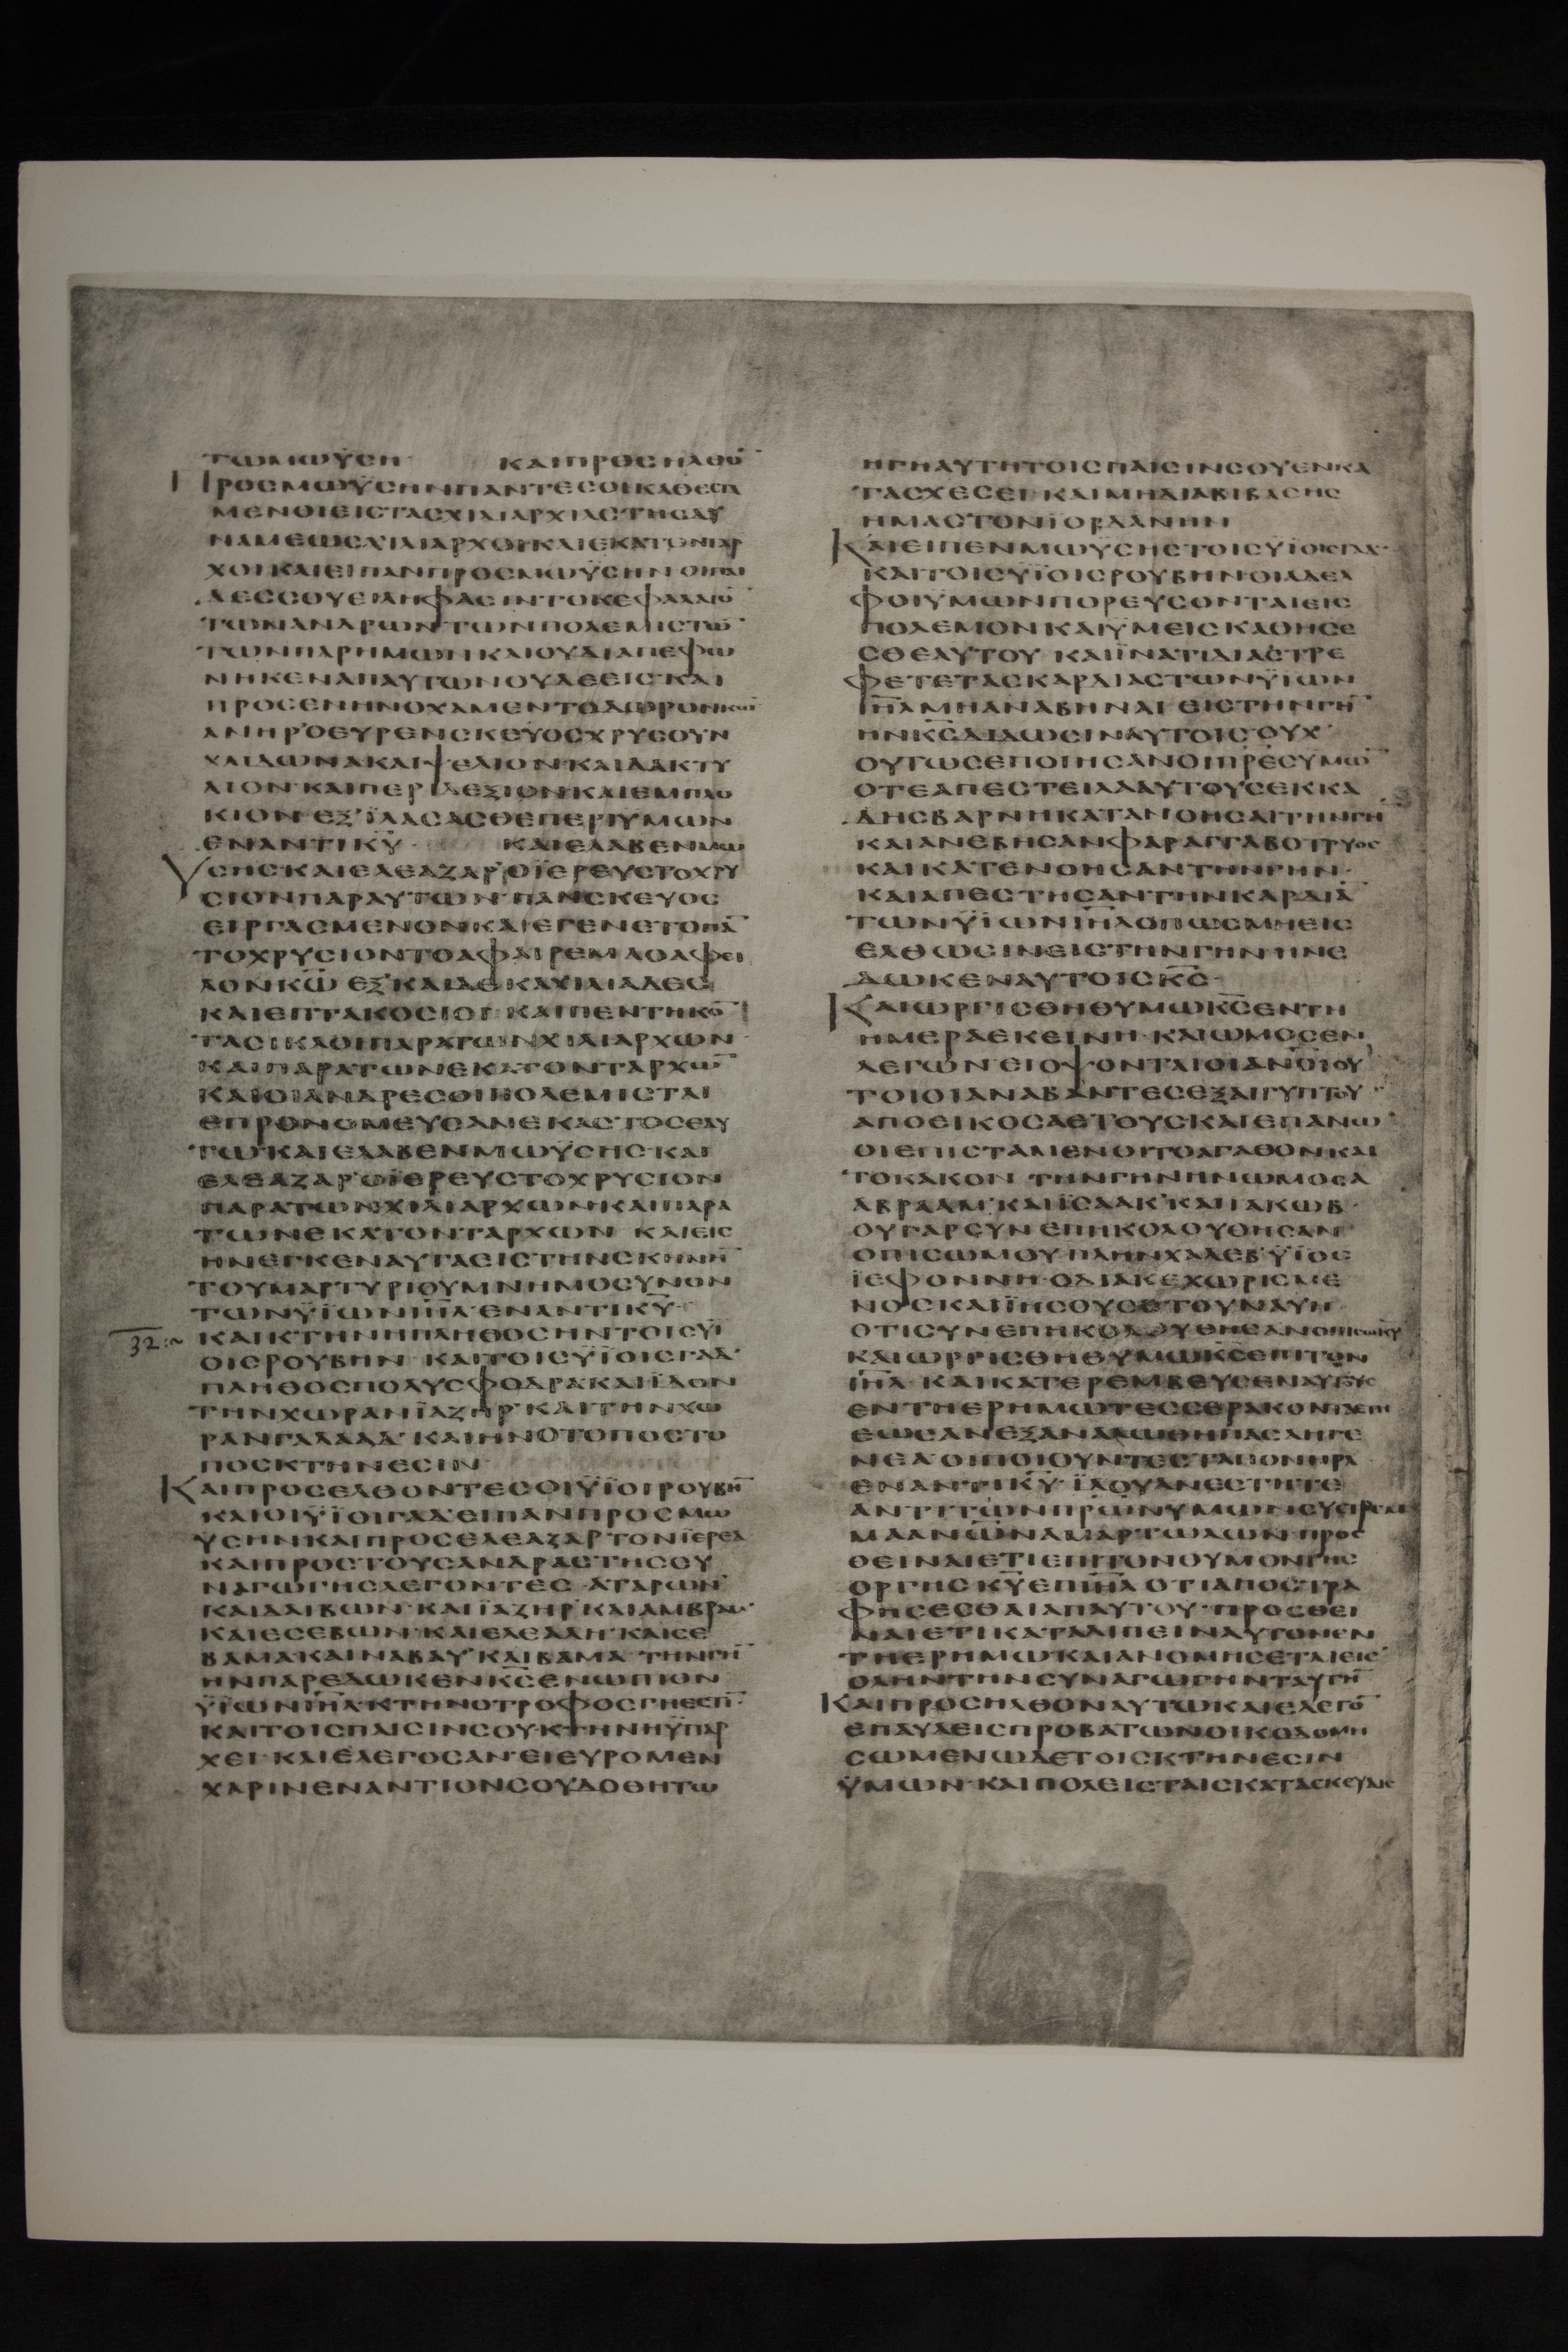 ΤΩΜΩΫΣΗ ΚΑΙΠΡΟΣΗΛΘΟ̅
ΠΡΟΣΜΩΫΣΗΝΠΑΝΤΕΣΟΙΚΑΘΕΣΤΑ
ΜΕΝΟΙΕΙΣΤΑΣΧΙΛΙΑΡΧΙΑΣΤΗΣΔΥ
ΝΑΜΕΩΣΧΙΛΙΑΡΧΟΙΚΑΙΕΚΑΤΟΝΤΑΡ
ΧΟΙΚΑΙΕΙΠΑΝΠΡΟΣΜΩΫΣΗΝΟΙΠΑΙ
ΔΕΣΣΟΥΕΙΛΗΦΑΣΙΝΤΟΚΕΦΑΛΑΙΟ̅
ΤΩΝΑΝΔΡΩΝΤΩΝΠΟΛΕΜΙΣΤΩ̅
ΤΩΝΠΑΡΗΜΩΝΚΑΙΟΥΔΙΑΠΕΦΩ
ΝΗΚΕΝΑΠΑΥΤΩΝΟΥΔΕΕΙΣ·ΚΑΙ
ΠΡΟΣΕΝΗΝΟΧΑΜΕΝΤΟΔΩΡΟΝΚ̅Ω̅
ΑΝΗΡΟΕΥΡΕΝΣΚΕΥΟΣΧΡΥΣΟΥΝ
ΧΛΙΔΩΝΑΚΑΙΨΕΛΙΟΝ·ΚΑΙΔΑΚΤΥ
ΛΙΟΝ·ΚΑΙΠΕΡΙΔΕΞΙΟΝ·ΚΑΙΕΜΠΛΟ
ΚΙΟΝ·ΕΞΪΛΑΣΑΣΘΕΠΕΡΙΥΜΩΝ
ΕΝΑΝΤΙΚ̅Υ̅· ΚΑΙΕΛΑΒΕΝΜΩ
ΥΣΗΣΚΑΙΕΛΕΑΖΑΡΟΪΕΡΕΥΣΤΟΧΡΥ
ΣΙΟΝΠΑΡΑΥΤΩΝ·ΠΑΝΣΚΕΥΟΣ
ΕΙΡΓΑΣΜΕΝΟΝΚΑΙΕΓΕΝΕΤΟΠΑ̅
ΤΟΧΡΥΣΙΟΝΤΟΑΦΑΙΡΕΜΑΟΑΦΕΙ
ΛΟΝΚ̅Ω̅ΕΞΚΑΙΔΕΚΑΧΙΛΙΑΔΕΣ
ΚΑΙΕΠΤΑΚΟΣΙΟΙ·ΚΑΙΠΕΝΤΗΚΟ̅
ΤΑΣΙΚΛΟΙΠΑΡΑΤΩΝΧΙΛΙΑΡΧΩΝ·
ΚΑΙΠΑΡΑΤΩΝΕΚΑΤΟΝΤΑΡΧΩ̅
ΚΑΙΟΙΑΝΔΡΕΣΟΙΠΟΛΕΜΙΣΤΑΙ
ΕΠΡΟΝΟΜΕΥΣΑΝΕΚΑΣΤΟΣΕΑΥ
ΤΩΚΑΙΕΛΑΒΕΝΜΩΫΣΗΣΚΑΙ
ΕΛΕΑΖΑΡΟΪΕΡΕΥΣΤΟΧΡΥΣΙΟΝ
ΠΑΡΑΤΩΝΧΙΛΙΑΡΧΩΝΚΑΙΠΑΡΑ
ΤΩΝΕΚΑΤΟΝΤΑΡΧΩΝ ΚΑΙΕΙΣ
ΗΝΕΓΚΕΝΑΥΤΑΕΙΣΤΗΝΣΚΗΝΗ̅
ΤΟΥΜΑΡΤΥΡΙΟΥΜΝΗΜΟΣΥΝΟΝ
ΤΩΝΫΪΩΝΙ̅Η̅Λ̅ΕΝΑΝΤΙΚ̅Υ̅·
32:~ ΚΑΙΚΤΗΝΗΠΛΗΘΟΣΗΝΤΟΙΣΥΪ
ΟΙΣΡΟΥΒΗΝ ΚΑΙΤΟΙΣΫΪΟΙΣΓΑΔ·
ΠΛΗΘΟΣΠΟΛΥΣΦΟΔΡΑΚΑΙΪΔΟΝ
ΤΗΝΧΩΡΑΝΪΑΖΗΡ·ΚΑΙΤΗΝΧΩ
ΡΑΝΓΑΛΑΑΔ·ΚΑΙΗΝΟΤΟΠΟΣΤΟ
ΠΟΣΚΤΗΝΕΣΙΝ·
ΚΑΙΠΡΟΣΕΛΘΟΝΤΕΣΟΙΫΪΟΙΡΟΥΒΗ̅
ΚΑΙΟΙΫΪΟΙΓΑΔ·ΕΙΠΑΝΠΡΟΣΜΩ
ΫΣΗΝΚΑΙΠΡΟΣΕΛΕΑΖΑΡΤΟΝΪΕΡΕΑ
ΚΑΙΠΡΟΣΤΟΥΣΑΝΔΡΑΣΤΗΣΣΥ
ΝΑΓΩΓΗΣΛΕΓΟΝΤΕΣ·ΑΤΑΡΩΝ
ΚΑΙΔΑΙΒΩΝ·ΚΑΙΪΑΖΗΡ·ΚΑΙΑΜΒΡΑΜ·
ΚΑΙΕΣΕΒΩΝ·ΚΑΙΕΛΕΑΛΗ·ΚΑΙΣΕ
ΒΑΜΑ·ΚΑΙΝΑΒΑΥ·ΚΑΙΒΑΜΑ·ΤΗΝΓΗ̅
ΗΝΠΑΡΕΔΩΚΕΝΚ̅Σ̅ΕΝΩΠΙΟΝ
ΫΪΩΝΙ̅Η̅Λ̅ΚΤΗΝΟΤΡΟΦΟΣΓΗΕΣΤΙ̅·
ΚΑΙΤΟΙΣΠΑΙΣΙΝΣΟΥ·ΚΤΗΝΗΫΠΑΡ
ΧΕΙ·ΚΑΙΕΛΕΓΟΣΑΝ·ΕΙΕΥΡΟΜΕΝ
ΧΑΡΙΝΕΝΑΝΤΙΟΝΣΟΥΔΟΘΗΤΩ
ΗΓΗΑΥΤΗΤΟΙΣΠΑΙΣΙΝΣΟΥΕΝΚΑ
ΤΑΣΧΕΣΕΙ·ΚΑΙΜΗΔΙΑΒΙΒΑΣΗΣ
ΗΜΑΣΤΟΝΪΟΡΔΑΝΗΝ
ΚΑΙΕΙΠΕΝΜΩΫΣΗΣΤΟΙΣΫΪΟΙΣΓΑΔ·
ΚΑΙΤΟΙΣΫΪΟΙΣΡΟΥΒΗΝ·ΟΙΑΔΕΛ
ΦΟΙΫΜΩΝΠΟΡΕΥΣΟΝΤΑΙΕΙΣ
ΠΟΛΕΜΟΝΚΑΙΫΜΕΙΣΚΑΘΗΣΕ
ΣΘΕΑΥΤΟΥ ΚΑΙΪΝΑΤΙΔΙΑΣΤΡΕ
ΦΕΤΕΤΑΣΚΑΡΔΙΑΣΤΩΝΫΪΩΝ
Ι̅Η̅Λ̅ΜΗΔΙΑΒΗΝΑΙΕΙΣΤΗΝΓΗ̅
ΗΝΚ̅Σ̅ΔΙΔΩΣΙΝΑΥΤΟΙΣΟΥΧ
ΟΥΤΩΣΕΠΟΙΗΣΑΝΟΙΠΡ̅Ε̅Σ̅ΥΜΩ̅
ΟΤΕΑΠΕΣΤΕΙΛΑΑΥΤΟΥΣΕΚΚΑ
ΔΗΣΒΑΡΝΗΚΑΤΑΝΟΗΣΑΙΤΗΝΓΗ̅
ΚΑΙΑΝΕΒΗΣΑΝΦΑΡΑΓΓΑΒΟΤΡΥΟΣ
ΚΑΙΚΑΤΕΝΟΗΣΑΝΤΗΝΓΗΝ·
ΚΑΙΑΠΕΣΤΗΣΑΝΤΗΝΚΑΡΔΙΑ̅
ΤΩΝΫΪΩΝΙ̅Η̅Λ̅ΟΠΩΣΜΗΕΙΣ
ΕΛΘΩΣΙΝΕΙΣΤΗΝΓΗΝΗΝΕ
ΔΩΚΕΝΑΥΤΟΙΣΚ̅Σ̅·
ΚΑΙΩΡΓΙΣΘΗΘΥΜΩΚ̅Σ̅ΕΝΤΗ
ΗΜΕΡΑΕΚΕΙΝΗ·ΚΑΙΩΜΟΣΕΝ
ΛΕΓΩΝ·ΕΙΟΨΟΝΤΑΙΟΙΑΝ̅Ο̅Ι̅ΟΥ
ΤΟΙΟΙΑΝΑΒΑΝΤΕΣΕΞΑΙΓΥΠΤΟΥ
ΑΠΟΕΙΚΟΣΑΕΤΟΥΣΚΑΙΕΠΑΝΩ·
ΟΙΕΠΙΣΤΑΜΕΝΟΙΤΟΑΓΑΘΟΝΚΑΙ
ΤΟΚΑΚΟΝ ΤΗΝΓΗΝΗΝΩΜΟΣΑ
ΑΒΡΑΑΜ·ΚΑΙΪΣΑΑΚ·ΚΑΙΪΑΚΩΒ·
ΟΥΓΑΡΣΥΝΕΠΗΚΟΛΟΥΘΗΣΑΝ
ΟΠΙΣΩΜΟΥ·ΠΛΗΝΧΑΛΕΒ·ΫΪΟΣ
ΪΕΦΟΝΝΗ·ΟΔΙΑΚΕΧΩΡΙΣΜΕ
ΝΟΣΚΑΙΪΗΣΟΥΣΟΤΟΥΝΑΥΗ·
ΟΤΙΣΥΝΕΠΗΚΟΛΟΥΘΗΣΑΝΟΠΙΣΩΚ̅Υ̅
ΚΑΙΩΡΓΙΣΘΗΘΥΜΩΚ̅Σ̅ΕΠΙΤΟΝ
Ι̅Η̅Λ̅·ΚΑΙΚΑΤΕΡΕΜΒΕΥΣΕΝΑΥΤΟΥΣ
ΕΝΤΗΕΡΗΜΩΤΕΣΣΕΡΑΚΟΝΤΑΕΤΗ
ΕΩΣΑΝΕΞΑΝΑΛΩΘΗΠΑΣΑΗΓΕ
ΝΕΑΟΙΠΟΙΟΥΝΤΕΣΤΑΠΟΝΗΡΑ
ΕΝΑΝΤΙΚ̅Υ̅·ΪΔΟΥΑΝΕΣΤΗΤΕ
ΑΝΤΙΤΩΝΠΡ̅Ω̅Ν̅ΥΜΩΝ
ΜΑΑΝ̅Ω̅Ν̅ΑΜΑΡΤΩΛΩΝ·ΠΡΟΣ
ΘΕΙΝΑΙΕΤΙΕΠΙΤΟΝΘΥΜΟΝΤΗΣ
ΟΡΓΗΣΚ̅Υ̅ΕΠΙΙ̅Η̅Λ̅ΟΤΙΑΠΟΣΤΡΑ
ΦΗΣΕΣΘΑΙΑΠΑΥΤΟΥ·ΠΡΟΣΘΕΙ
ΝΑΙΕΤΙΚΑΤΑΛΙΠΕΙΝΑΥΤΟΝΕΝ
ΤΗΕΡΗΜΩΚΑΙΑΝΟΜΗΣΕΤΑΙΕΙΣ
ΟΛΗΝΤΗΝΣΥΝΑΓΩΓΗΝΤΑΥΤΗ̅
ΚΑΙΠΡΟΣΗΛΘΟΝΑΥΤΩΚΑΙΕΛΕΓΟ̅
ΕΠΑΥΛΕΙΣΠΡΟΒΑΤΩΝΟΙΚΟΔΟΜΗ
ΣΩΜΕΝΩΔΕΤΟΙΣΚΤΗΝΕΣΙΝ
ΫΜΩΝ·ΚΑΙΠΟΛΕΙΣΤΑΙΣΚΑΤΑΣΚΕΥΑΙΣ